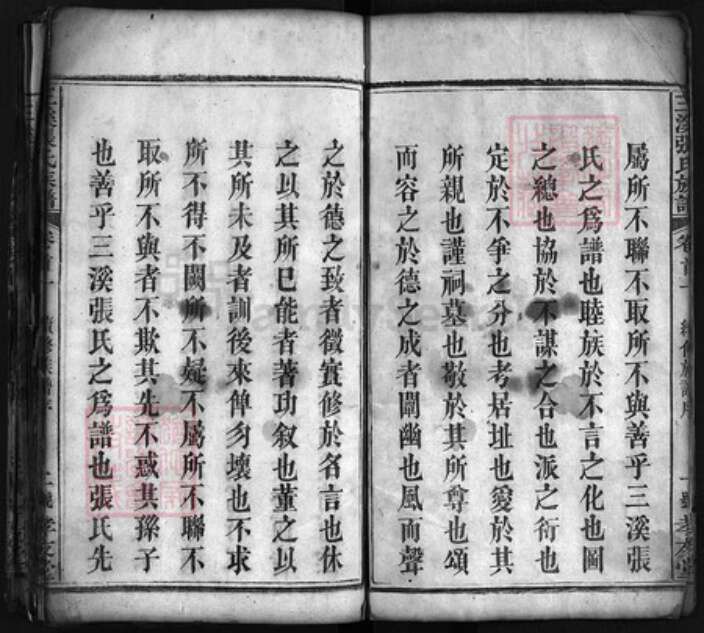 三溪張氏族譜
屬所不聯不取所不與善乎三溪張
氏之爲譜也睦族於不言之化也圖
之總也協於不謀之合也派之衍也
定於不爭之分也考居址也愛於其
所親也謹祠墓也敬於其所尊也頌
而容之於德之成者闡幽也風而聲
之於德之致者徵實修於名言也休
之以其所已能者著功叙也董之以
其所未及者訓後來俾勿壞也不求
所不得不闕所不疑不屬所不聯不
取所不與者不欺其先不惑其孫子
也善乎三溪張氏之爲譜也張氏先